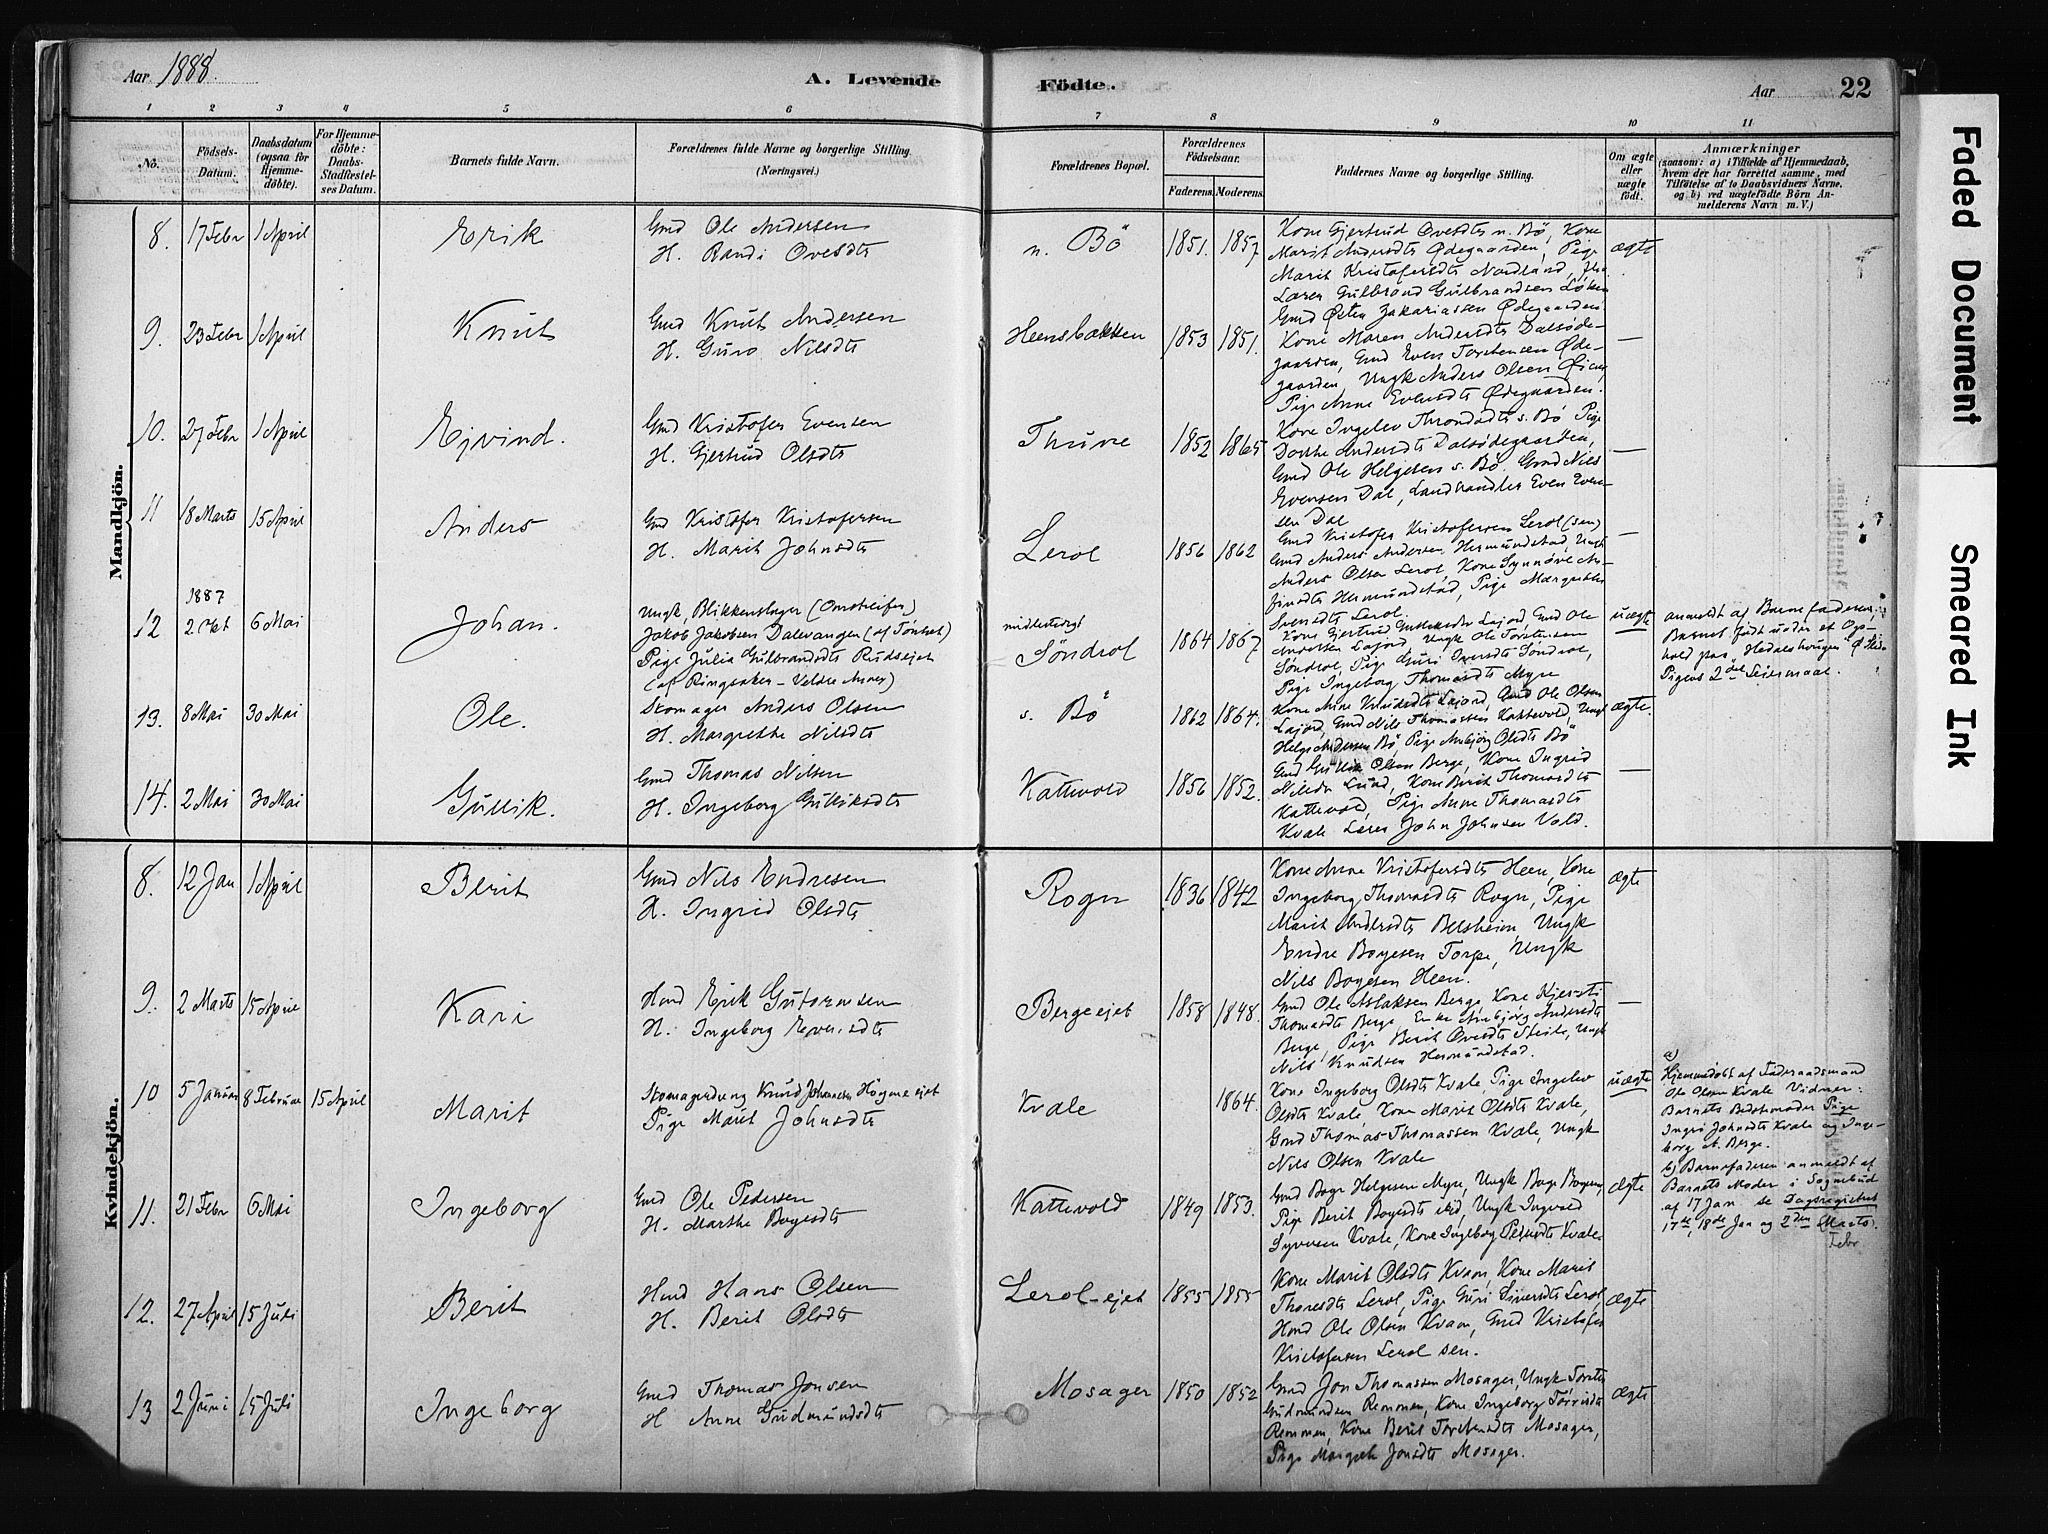 Aar 1888.
A. Levende Födte.
Aar 22
1 2 3 4 5 6 7 8 9 10 11
No.
Födsels-Datum.
Daabsdatum (ogsaa for Hjemmedöbte).
For Hjemmedöbte: Daabs-Stadfæstelses Datum.
Barnets fulde Navn.
Forældrenes fulde Navne og borgerlige Stilling. (Næringsvei.)
Forældrenes Bopæl.
Forældrenes Födselsaar.
Faderens. Moderens.
Faddernes Navne og borgerlige Stilling.
Om ægte eller uægte födt.
Anmærkninger
(saasom: a) i Tilfælde af Hjemmedaab, hvem der har forrettet samme, med Tilföielse af to Daabsvidners Navne. og b) ved uægtefödte Börn Anmelderens Navn m. V.)
Mandkjön.
8. 17 Febr 1 April Erik
Gmd Ole Andersen
H. Randi Ovesdtr
n. Bö 1851. 1857
Kone Gjertrud Ovesdtr n. Bö, Kone
Marit Andersdtr Ødegaarden, Pige
Marit Kristofersdtr Nordland,
Lærer Gulbrand Gulbrandsen Løken
Gmd Østen Zakariassen Ødegaarden
ægte
9. 23 Febr 1 April Knut
Gmd Knut Andersen
H. Guro Nilsdtr
Heensbakken 1853 1851.
Kone Maren Andersdtr Dalsøde-
gaarden, Gmd Even Torstensen Øde-
gaarden, Ungk Anders Olsen
Pige Anne Evensdtr Ødegaarden.
—
10. 27 Febr 1 April Ejvind.
Gmd Kristofer Evensen
H. Gjertrud Olsdtr
Thune 1852 1865
Kone Ingelev Throndsdtr s. Bö Pige
Dorthe Andersdtr Dalsødegaarden,
Gmd Ole Helgesen s. Bö. Gmd Nils
Evensen Dal, Landhandler Even Even-
sen Dal
—
11 18 Marts 15 April Anders
Gmd Kristofer Kristofersen
H. Marit Johnsdtr
Lerol 1856 1862
Gmd Kristofer Kristofersen Lerol (sen)
Gmd Anders Andersen Hermundstad, Ungk
Anders Olsen Lerol, Kone Synnöve An-
finsdtr Hermundstad, Pige Margrethe
Svensdtr Lerol.
—
1887
12 2 Okt 6 Mai Johan.
Ungk, Blikkenslager (Omstreifer)
Jakob Jakobsen Dalevangen (af Tönset)
Pige Julia Gulbrandsdtr Rudsejet
(af Ringsaker – Veldre Annex)
midlertidigt
Söndrol 1864 1867
Kone Gjertrud Lajord, Gmd Ole
Andersen Lajord, Ungk Ole Torstensen
Söndrol, Pige Guri Iversdtr Söndrol,
Pige Ingeborg Thomasdtr Myre
uægte
anmeldt af Barnefaderen.
Barnet födt under et Op-
hold paa
Pigens 2det Leiermaal.
13. 8 Mai 30 Mai Ole.
Skomager Anders Olsen
H. Margrethe Nilsdtr
s. Bö 1862 1864.
Kone Anne Knudsdtr Lajord, Gmd Ole Olsen
Lajord, Gmd Nils Thomassen Kattevold, Ungk
Helge Andersen Bö, Pige Ambjörg Olsdtr Bö
ægte.
14. 2 Mai 30 Mai Gullik.
Gmd Thomas Nilsen
H. Ingeborg Gulliksdtr
Kattevold 1856 1852.
Gmd Gullik Olsen Berge, Kone Ingrid
Nilsdtr Lund, Kone Berit Thomasdtr
Kattevold, Pige Anne Thomasdtr
Kvale Lærer John Johnsen Vold.
—
Kvindekjön.
8. 12 Jan 1 April Berit
Gmd Nils Endresen
H. Ingrid Olsdtr
Rogn 1836 1842
Kone Anne Kristofersdtr Heen, Kone
Ingeborg Thomasdtr Rogn, Pige
Marit Andersdtr Belsheim, Ungk
Endre Boyesen Torpe, Ungk
Nils Boyesen Heen.
ægte
9. 2 Marts 15 April Kari
Hmd Erik Guttormsen
H. Ingeborg Iversdtr
Bergeejet 1858 1848.
Gmd Ole Aslaksen Berge, Kone Kjersti
Thomasdtr Berge, Enke Ambjörg Andersdtr
Berge, Pige Berit Ovesdtr Steile, Ungk
Nils Knudsen Hermundstad.
—
10 5 Januar 8 Februar 15 April Marit
Skomagerdreng Knud Johannesen Högne ejet
Pige Marit Johnsdtr
Kvale 1864.
Kone Ingeborg Olsdtr Kvale, Pige Ingelev
Olsdtr Kvale, Kone Marit Olsdtr Kvale,
Gmd Thomas Thomassen Kvale, Ungk
Nils Olsen Kvale
uægte
a)
Hjemmedöbt af Föderaadsmand
Ole Olsen Kvale Vidner:
Barnets Bedstemoder Pige
Ingri Johnsdtr Kvale og Inge-
borg st. Berge.
b) Barnefaderen anmeldt af
Barnets Moder i Sognebud
af 17 Jan se Dagsregistret
17de, 18de Jan og 2den (Marts).
Febr
11. 21 Febr 6 Mai Ingeborg
Gmd Ole Pedersen
H. Marthe Boyesdtr
Kattevold 1849 1853.
Gmd Boye Helgesen Myre, Ungk Boye Boyesen,
Pige Berit Boyesdtr ibid, Ungk Ingvald
Syversen Kvale, Kone Ingeborg Pedersdtr Kvale
ægte
12. 27 April 15 Juli Berit
Hmd Hans Olsen
H. Berit Olsdtr
Lerol-ejet 1855 1855
Kone Marit Olsdtr Kvam, Kone Marit
Thoresdtr Lerol, Pige Guri Siversdtr Lerol,
Hmd Ole Olsen Kvam, Gmd Kristofer
Kristofersen Lerol sen.
ægte
13 2 Juni 15 Juli Ingeborg
Gmd Thomas Jonsen
H Anne Gudmundsdtr
Mosager 1850 1852
Gmd Jon Thomassen Mosager, Ungk Torsten
Gudmundsen Remmen, Kone Ingeborg
Remmen, Kone Berit Torstensdtr Mosager,
Pige Margrete Jonsdtr Mosager.
ægte
Faded Document
Smeared Ink